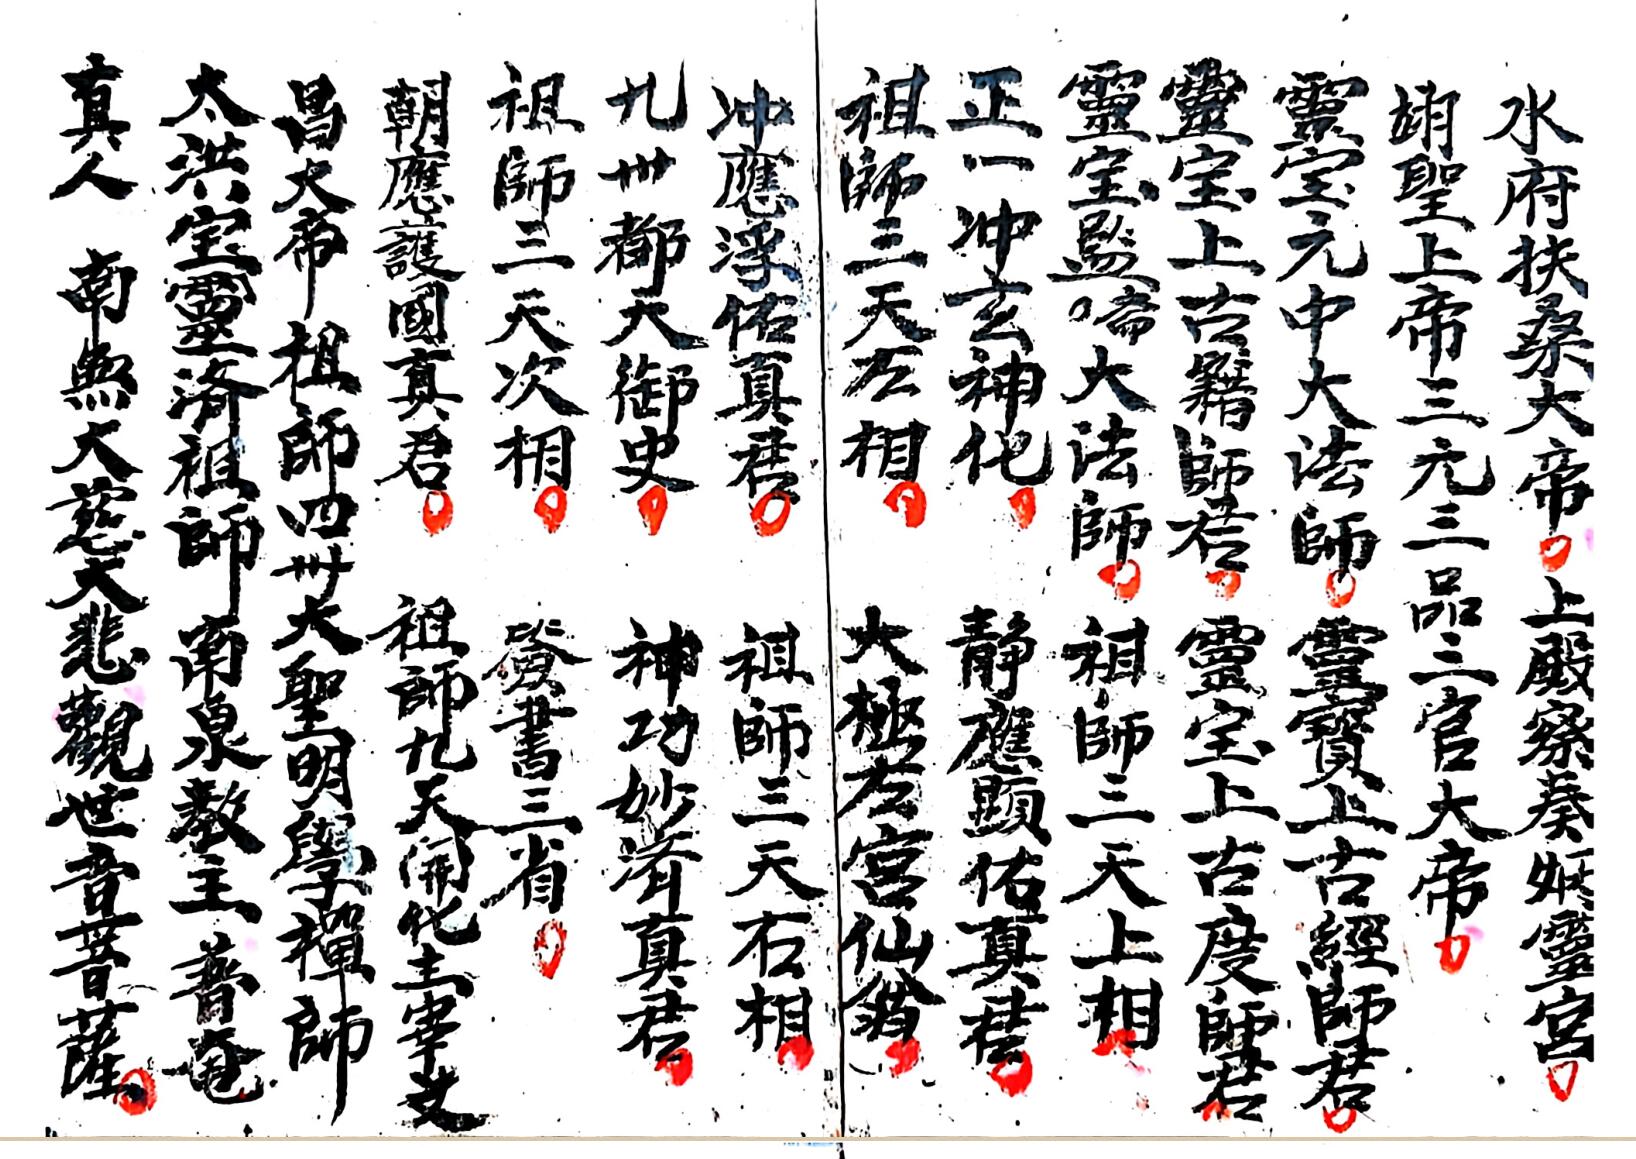 水府扶桑大帝 上殿察奏妳靈宮
翊聖上帝三元三品三官大帝
靈宝元中大法師 靈寶上古經師君
靈宝上古籍師君 靈宝上古度師君
靈宝監齋大法師 祖師三天上相
正一冲玄神化 静應顯佑真君
祖師三天左相 大極左宮仙翁
冲應浮佑真君 祖師三天右相
九卅都天御史 神功妙濟真君
祖師三天次相 發書三省
朝應護國真君 祖師九天開化主宰文
昌大帝 祖師四卅大聖明學禪師
太洪宝靈济祖師 南泉教主 普庵
真人 南無大慈大悲觀世音菩薩